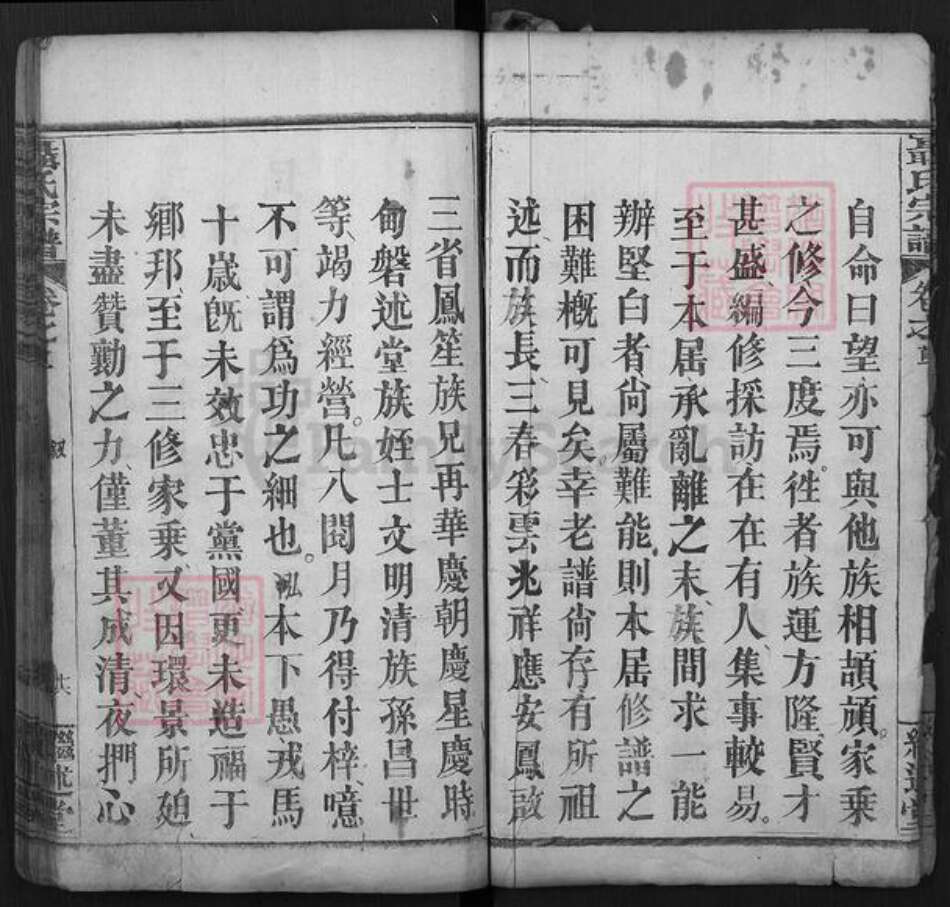 自命曰望亦可與他族相頡頏家乘
之修今三度焉徃者族運方隆賢才
甚盛編修採訪在在有人集事較易
至于本居承亂離之末族間求一能
辦堅白者尙屬難能則本居修譜之
困難概可見矣幸老譜尙存有所祖
述而族長三春彩雲兆祥應安鳳啟
三省鳳笙族兄再華慶朝慶星慶時
甸磐述堂族姪士文明清族孫昌世
等竭力經營凡八閱月乃得付梓噫
不可謂爲功之細也泓本下愚戎馬
十歲旣未效忠于黨國更未造福于
鄉邦至于三修家乘又因環景所廹
未盡贊勷之力僅董其成清夜捫心
聶氏宗譜
卷之首
聶氏宗譜
卷之首
敘
FamilySearch